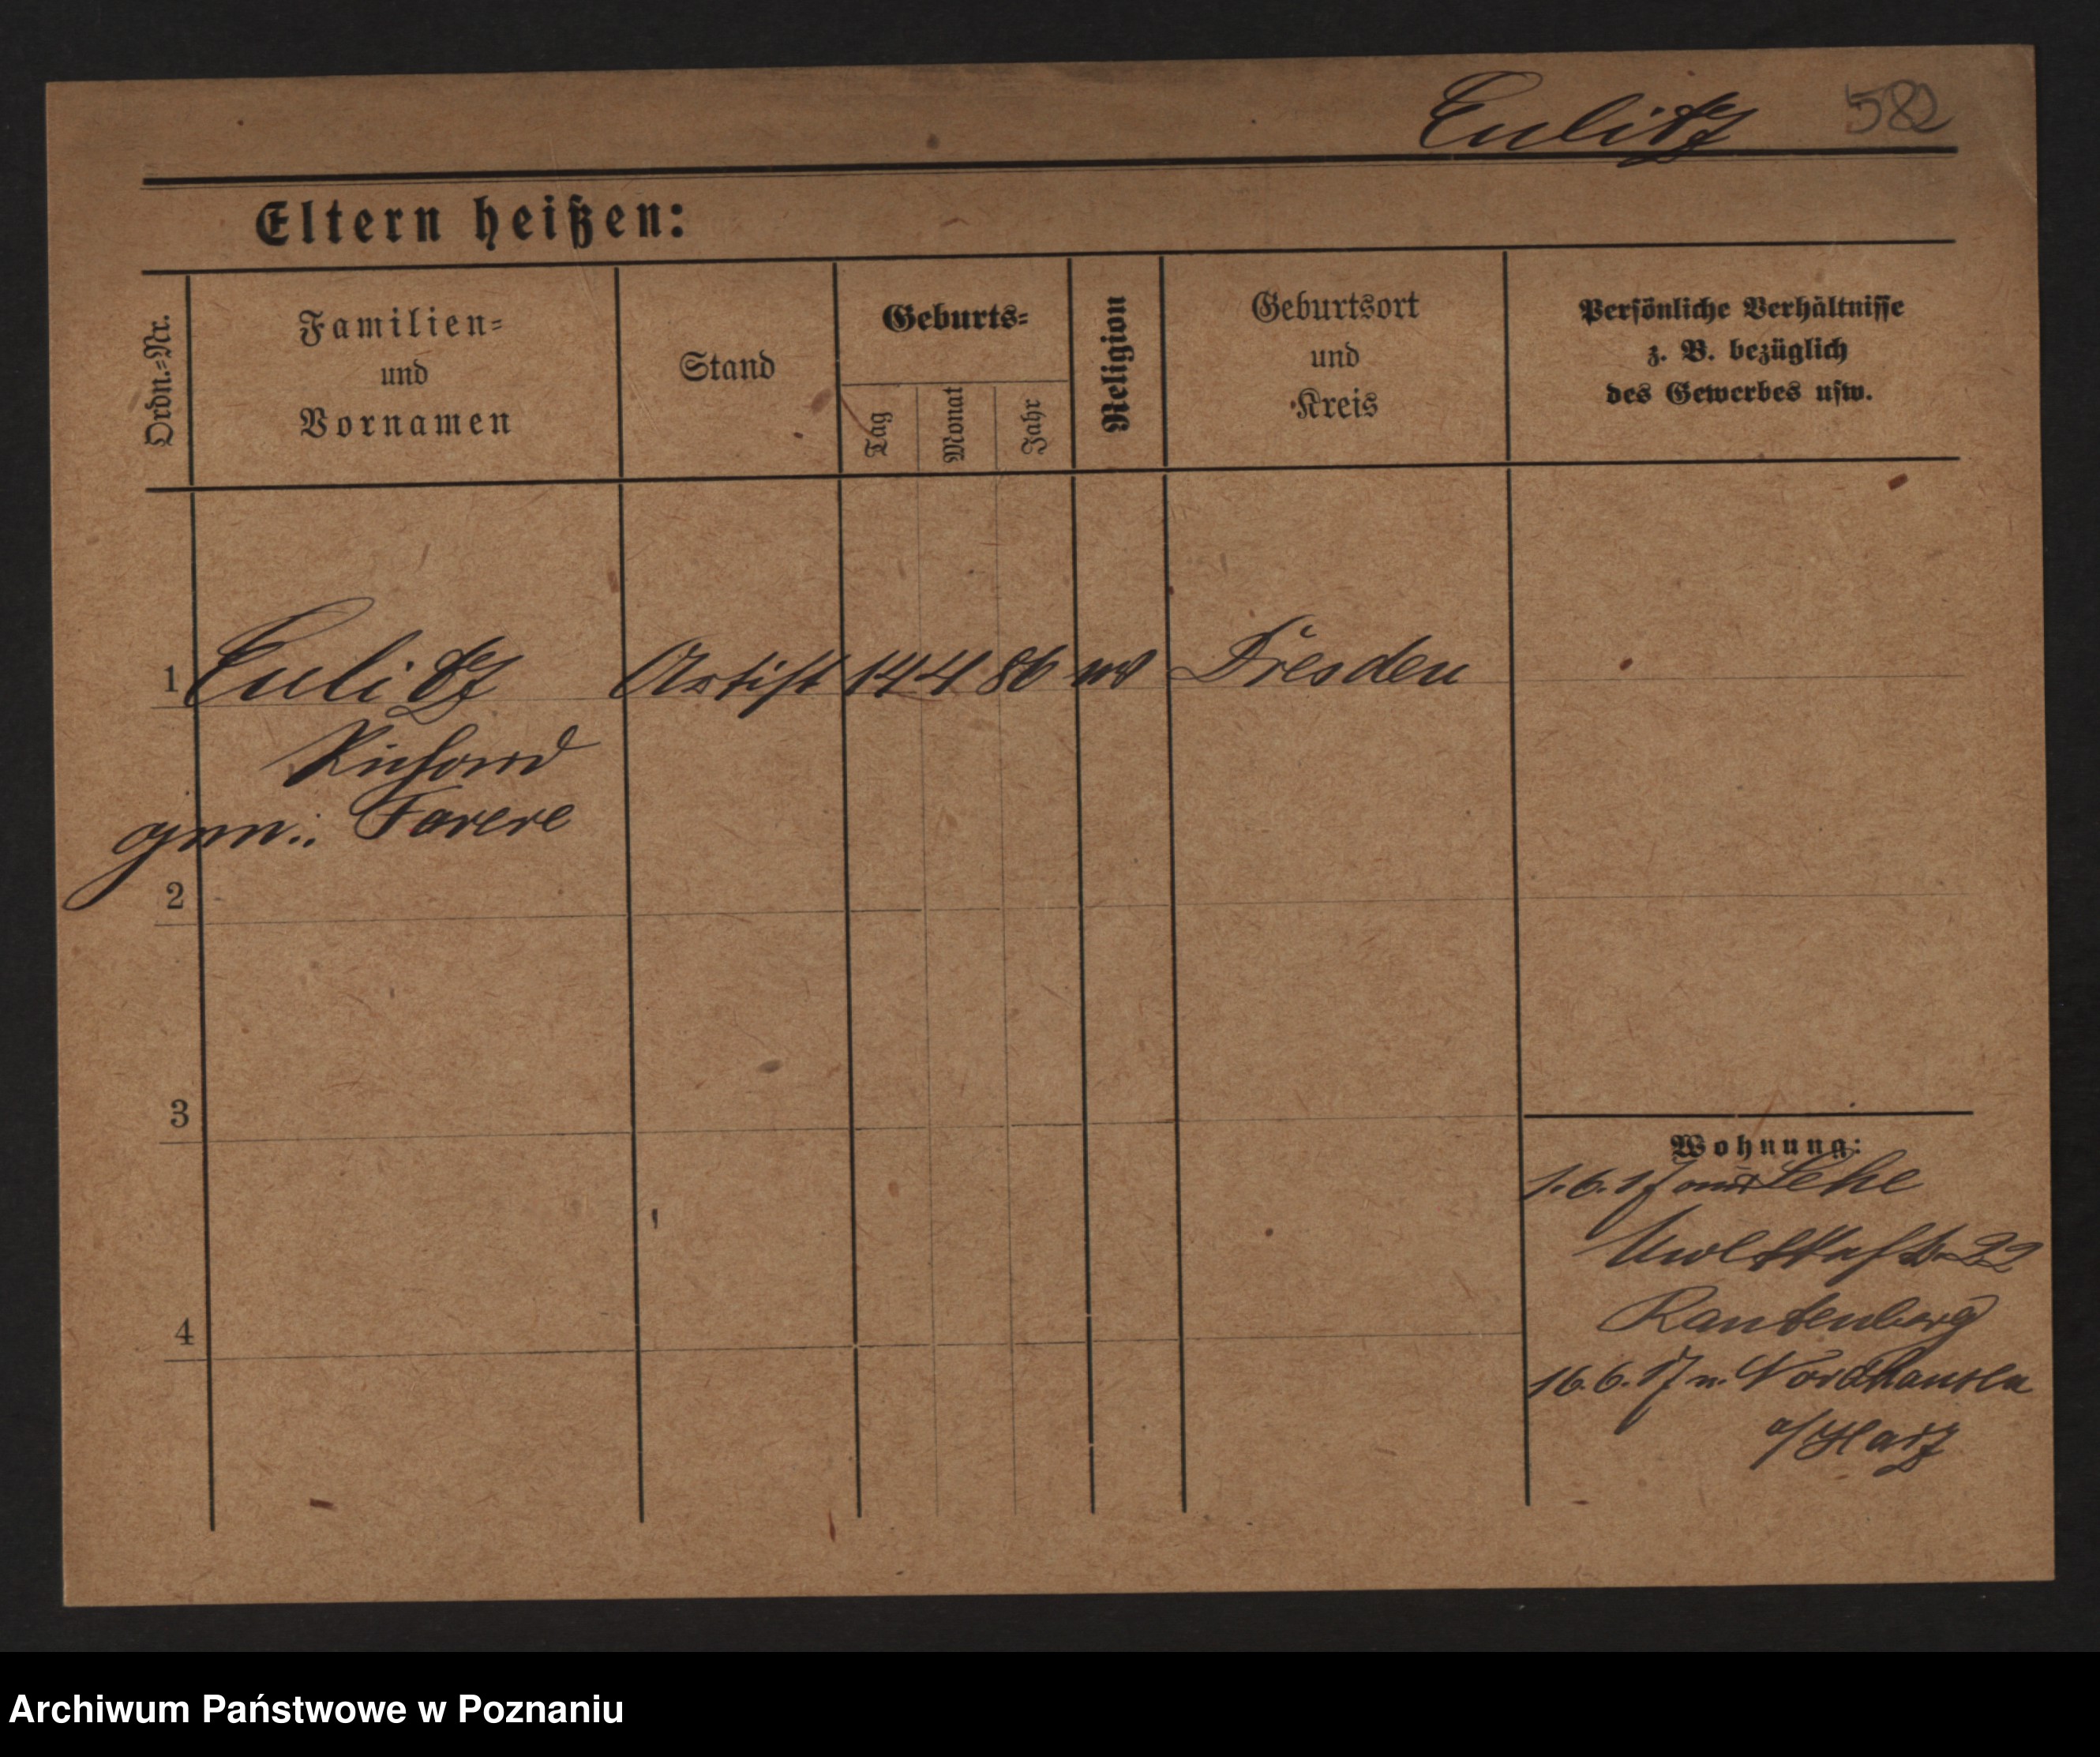 Eulitz 582
Eltern heißen:
Ordn.=Nr.
Familien=
und
Vornamen
Stand
Geburts=
Tag
Monat
Jahr
Religion
Geburtsort
und
Kreis
Persönliche Verhältnisse
z. B. bezüglich
des Gewerbes usw.
1 Eulitz Artist 14 4 86 Dresden
Richard
gnn.: Farere
2
3
4
Wohnung:
1.6.17 aus Lehe
22
Rautenberg
16.6.17 n. Nordhausen
a/Harz
Archiwum Państwowe w Poznaniu